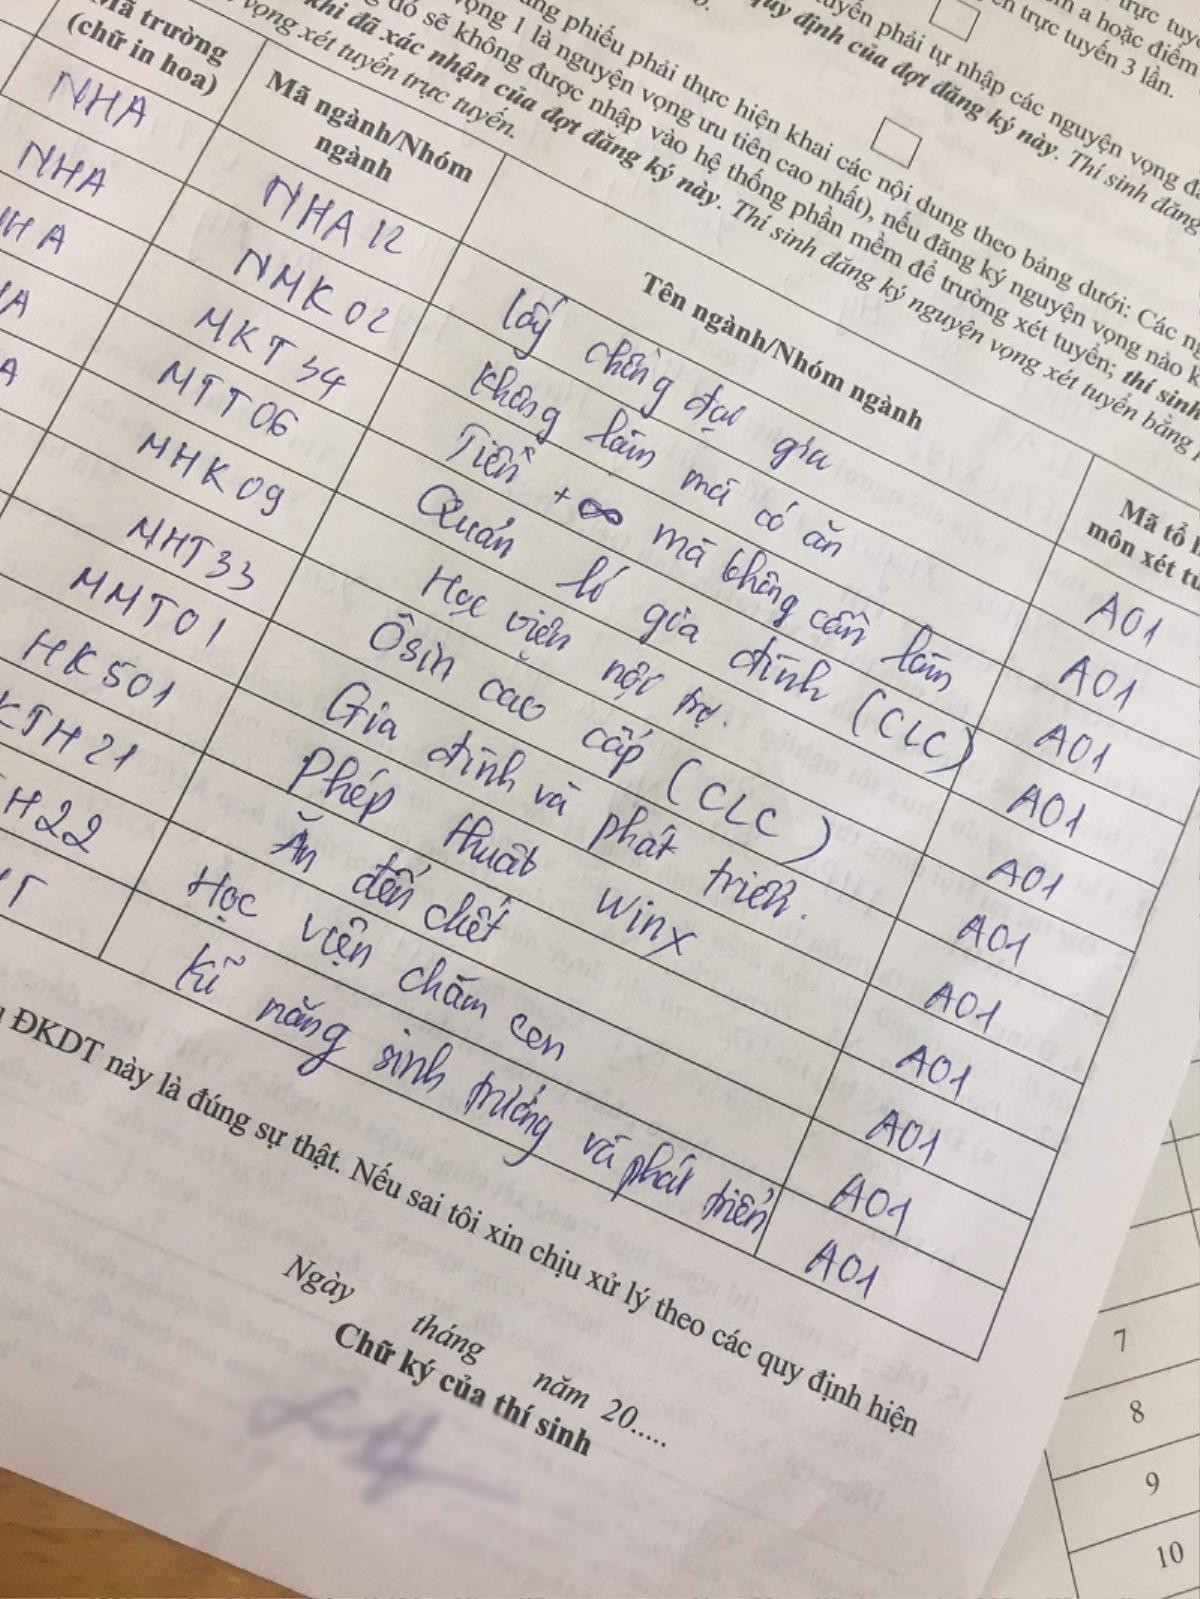 ng phiếu phải thực hiện khai các nội dung theo bảng dưới: Các
vọng 1 là nguyện vọng ưu tiên cao nhất), nếu đăng ký nguyện vọng nào
đó sẽ không được nhập vào hệ thống phần mềm để trường xét tuyển; thí sinh
khi đã xác nhận của đợt đăng ký này. Thí sinh đăng ký nguyện vọng xét tuyển bằng
vọng xét tuyển trực tuyến.
phải tự nhập các nguyện vọng
quy định của đợt đăng ký này. Thí sinh đăng
a hoặc điểm
trực tuyến 3 lần.
Mã trường (chữ in hoa) Mã ngành/Nhóm ngành Tên ngành/Nhóm ngành Mã tổ môn xét
NHA NHA12 lấy chồng đại gia A01
NHA NMK02 Không làm mà có ăn A01
HA MKT34 Tiền +∞ mà không cần làm A01
A MTT06 Quản lí gia đình (CLC) A01
A MHK09 Học viện nội trợ. A01
MHT33 Ôsin cao cấp (CLC) A01
MMT01 Gia đình và phát triển. A01
HK501 Phép thuật winx A01
KTH21 Ăn đến chết A01
H22 Học viện chăm con A01
T Kĩ năng sinh trưởng và phát triển A01
ĐKDT này là đúng sự thật. Nếu sai tôi xin chịu xử lý theo các quy định hiện
Ngày tháng năm 20.....
Chữ ký của thí sinh
7
8
9
10